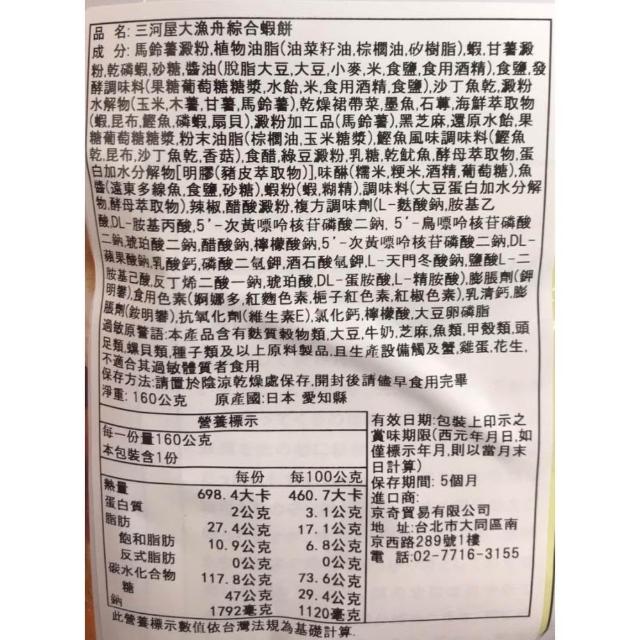 品 名: 三河屋大漁舟綜合蝦餅
成 分: 馬鈴薯澱粉,植物油脂(油菜籽油,棕櫚油,矽樹脂),蝦,甘薯澱
粉,乾磷蝦,砂糖,醬油(脫脂大豆,大豆,小麥,米,食鹽,食用酒精),食鹽,發
酵調味料(果糖葡萄糖糖漿,水飴,米,食用酒精,食鹽),沙丁魚乾,澱粉
水解物(玉米,木薯,甘薯,馬鈴薯),乾燥裙帶菜,墨魚,石蓴,海鮮萃取物
(蝦,昆布,鰹魚,磷蝦,扇貝),澱粉加工品(馬鈴薯),黑芝麻,還原水飴,果
糖葡萄糖糖漿,粉末油脂(棕櫚油,玉米糖漿),鰹魚風味調味料(鰹魚
乾,昆布,沙丁魚乾,香菇),食醋,綠豆澱粉,乳糖,乾魷魚,酵母萃取物,蛋
白加水分解物[明膠(豬皮萃取物)],味醂(糯米,粳米,酒精,葡萄糖),魚
醬(遠東多線魚,食鹽,砂糖),蝦粉(蝦,糊精),調味料(大豆蛋白加水分解
物,酵母萃取物),辣椒,醋酸澱粉,複方調味劑(L-麩酸鈉,胺基乙
酸,DL-胺基丙酸,5'-次黃嘌呤核苷磷酸二鈉, 5'-鳥嘌呤核苷磷酸
二鈉,琥珀酸二鈉,醋酸鈉,檸檬酸鈉,5'-次黃嘌呤核苷磷酸二鈉,DL-
蘋果酸鈉,乳酸鈣,磷酸二氫鉀,酒石酸氫鉀,L-天門冬酸鈉,鹽酸L-二
胺基己酸,反丁烯二酸一鈉,琥珀酸,DL-蛋胺酸,L-精胺酸),膨脹劑(鉀
明礬),食用色素(婀娜多,紅麴色素,梔子紅色素,紅椒色素),乳清鈣,膨
脹劑(銨明礬),抗氧化劑(維生素E),氯化鈣,檸檬酸,大豆卵磷脂
過敏原警語:本產品含有麩質穀物類,大豆,牛奶,芝麻,魚類,甲殼類,頭
足類,螺貝類,種子類及以上原料製品,且生產設備觸及蟹,雞蛋,花生,
不適合其過敏體質者食用
保存方法:請置於陰涼乾燥處保存,開封後請儘早食用完畢
淨重: 160公克 原產國:日本 愛知縣
營養標示
每一份量160公克
本包裝含1份
每份 每100公克
熱量 698.4大卡 460.7大卡
蛋白質 2公克 3.1公克
脂肪 27.4公克 17.1公克
飽和脂肪 10.9公克 6.8公克
反式脂肪 0公克 0公克
碳水化合物 117.8公克 73.6公克
糖 47公克 29.4公克
鈉 1792毫克 1120毫克
此營養標示數值依台灣法規為基礎計算.
有效日期:包裝上印示之
賞味期限(西元年月日,如
僅標示年月,則以當月末
日計算)
保存期間: 5個月
進口商:
京奇貿易有限公司
地 址:台北市大同區南
京西路289號1樓
電 話:02-7716-3155